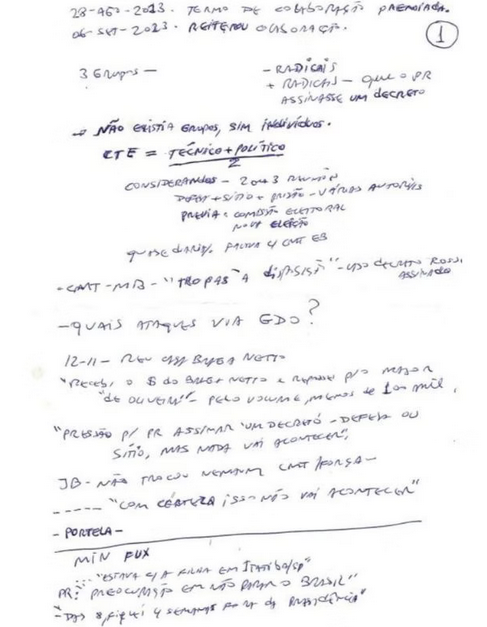 28-AGO-2023. TERMO DE COLABORAÇÃO PREMIADA.
06-SET-2023. REITEROU COLABORAÇÃO.
1
3 Grupos — - RADICAIS
+ RADICAIS - que o PR
ASSINASSE UM DECRETO
→ NÃO EXISTIA GRUPOS, SIM INDIVÍDUOS.
CTE = TÉCNICO + POLÍTICO
2
CONSIDERANDOS - 2 ou 3 REUNIÃO
+ SÍTIO + PRISÃO - VÁRIAS AUTORID
PREVIA: COMISSÃO ELEITORAL
NOVA ELEIÇÃO
C/ CMT EB
- CMT - MB - "TROPAS À DISPOSIÇÃO" - DECRETO
ASSINADO
- QUAIS ATAQUES VIA GDO?
12-11 - REU CASA BRAGA NETTO
"RECEBI O $ do BRAGA NETTO e REPASSEI P/O MAJOR
"DE OLIVEIRA" - PELO VOLUME, MENOS DE 100 mil.
"PRESSÃO P/ PR ASSINAR UM DECRETO - DEFESA OU
SÍTIO, MAS NADA VAI ACONTECER",
JB - NÃO TROCOU NENHUM CMT/FORÇA -
----- "COM CERTEZA ISSO NÃO VAI ACONTECER"
- PORTELA -
MIN FUX
... "ESTAVA C/ A FILHA EM ITATIBA/SP"
PR: "PREOCUPAÇÃO EM NÃO PARAR O BRASIL"
FIQUEI 4 SEMANAS FORA DA PRESIDÊNCIA"